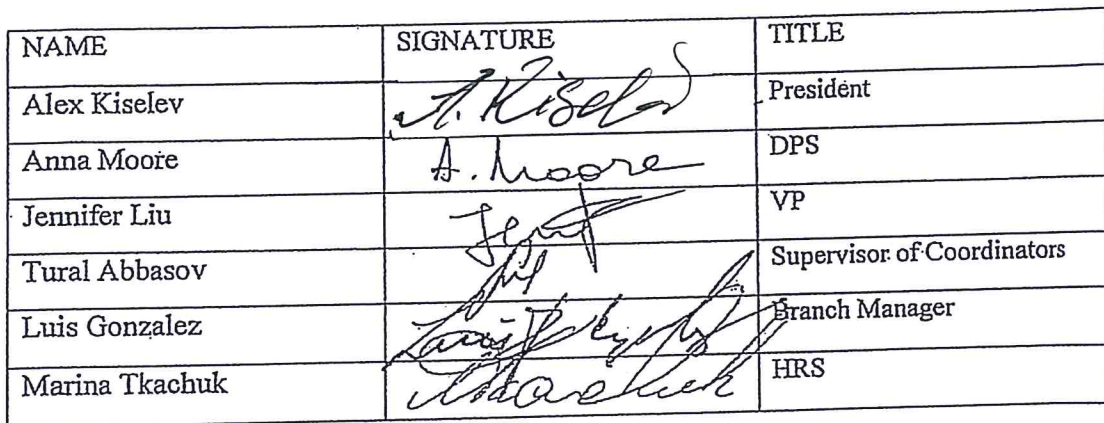 NAME SIGNATURE TITLE
Alex Kiselev A. Kiselev President
Anna Moore A. Moore DPS
Jennifer Liu VP
Tural Abbasov Supervisor of Coordinators
Luis Gonzalez Luis Branch Manager
Marina Tkachuk HRS